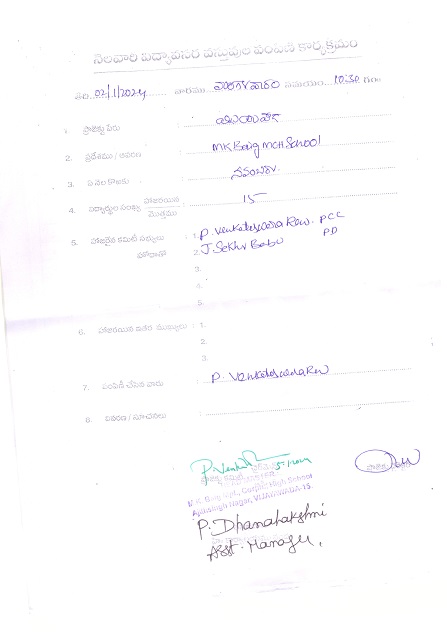 నెలవారి విద్యాపసర వస్తువుల పంపిణి కార్యక్రమం
తేది. 02/1/2024 వారము సమయం. 10:30 గం॥
1. ప్రాజెక్టు పేరు :
2. ప్రదేశము / వివరణ : MK Baig MCH School
3. ఏ నెల కొరకు : నవంబరు
4. విద్యార్థుల సంఖ్య హాజరయిన / మొత్తము : 15
5. హాజరైన కమిటీ సభ్యులు : 1. P. Venkateswara Rao. PCC
హోదాతో 2. J. Sekhr Babu PD
3.
4.
5.
6. హాజరయిన ఇతర ముఖ్యులు : 1.
2.
3.
7. పంపిణీ చేసిన వారు : P. Venkateswara Rao
8. వివరణ / సూచనలు :
P. Venkat
M.K. Baig Mpl. Corpn. High School
Ajitsingh Nagar, VIJAYAWADA-15.
P. Dhanalakshmi
Asst. Manager.